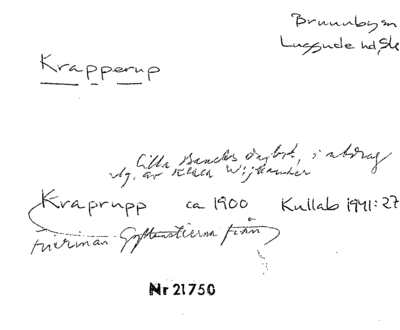 Brunnbysn
Luggude hd, Sk
Krapperup
Cilla Bancks dagbok, i utdrag
utg. av Klara Wijkander
Kraprupp ca 1900 Kullab 1941:27
friherinan Gyllenstierna från
Nr 21750